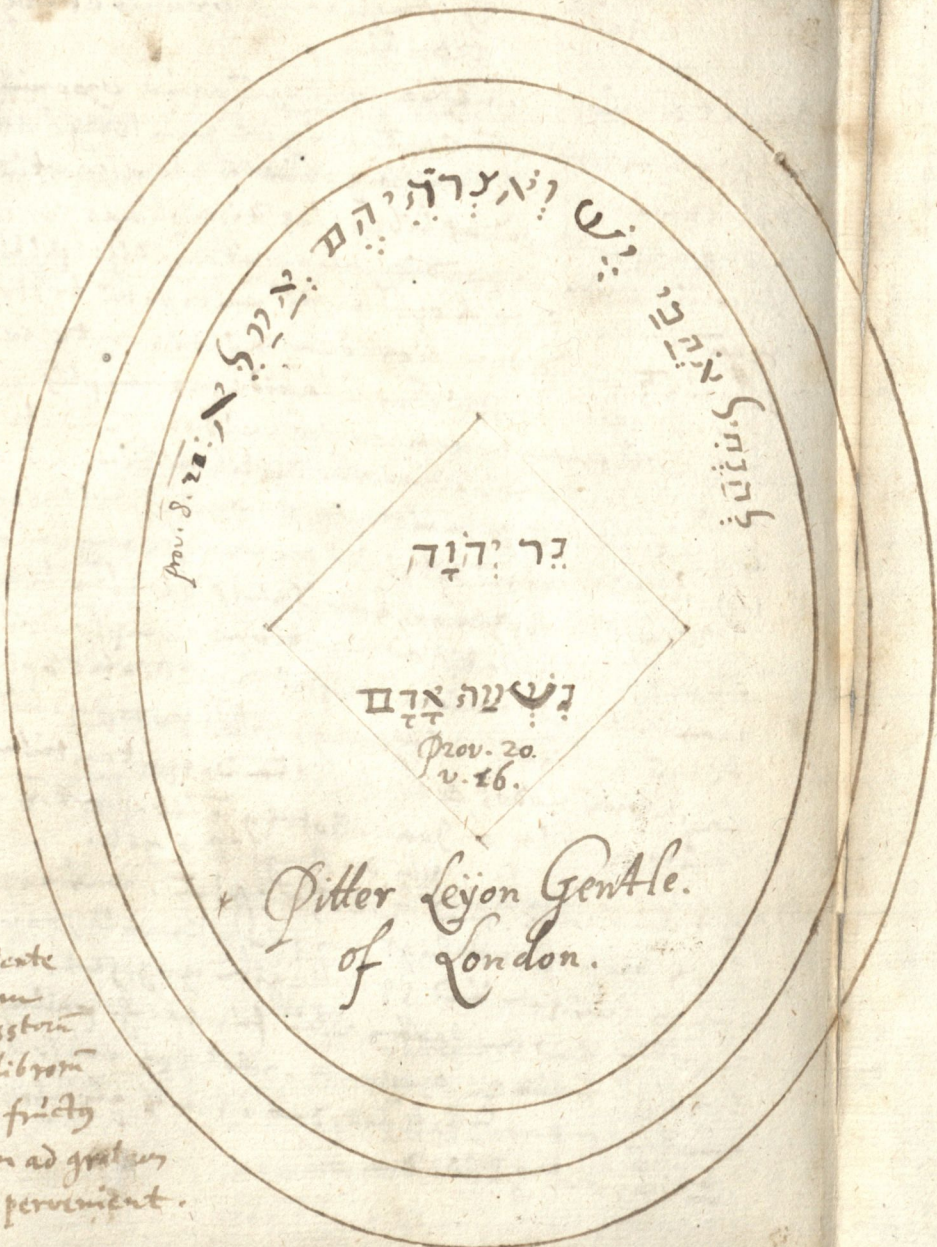 לְהַנְחִיל אֹהֲבַי יֵשׁ וְאֹצְרֹתֵיהֶם אֲמַלֵּא׃ prov. 8. 21.
נֵר יְהֹוָה
נִשְׁמַה אָדָם
Prov. 20.
v. 26.
Pitter Leÿon Gentle.
of London.
librorū
fructꝰ
ad
pervenient.